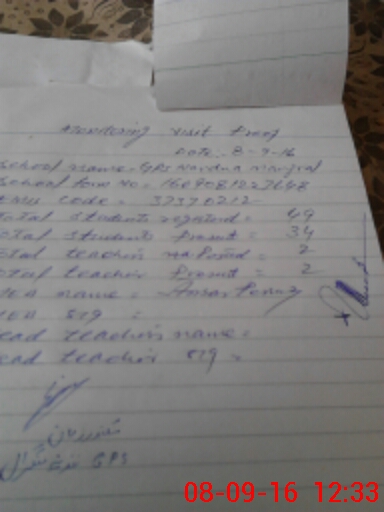 Monitoring Visit Proof
Date:- 8-9-16
School name:- GPS Nardna mangral
School form No = 160908122
EMIS code = 37370212
Total Students registerd = 49
Total Students Present = 34
Total teachers na Posted = 2
Total teacher Present = 2
MEA name =
MEA sig =
Head teacher's name =
Head teacher sig =
GPS
08-09-16 12:33